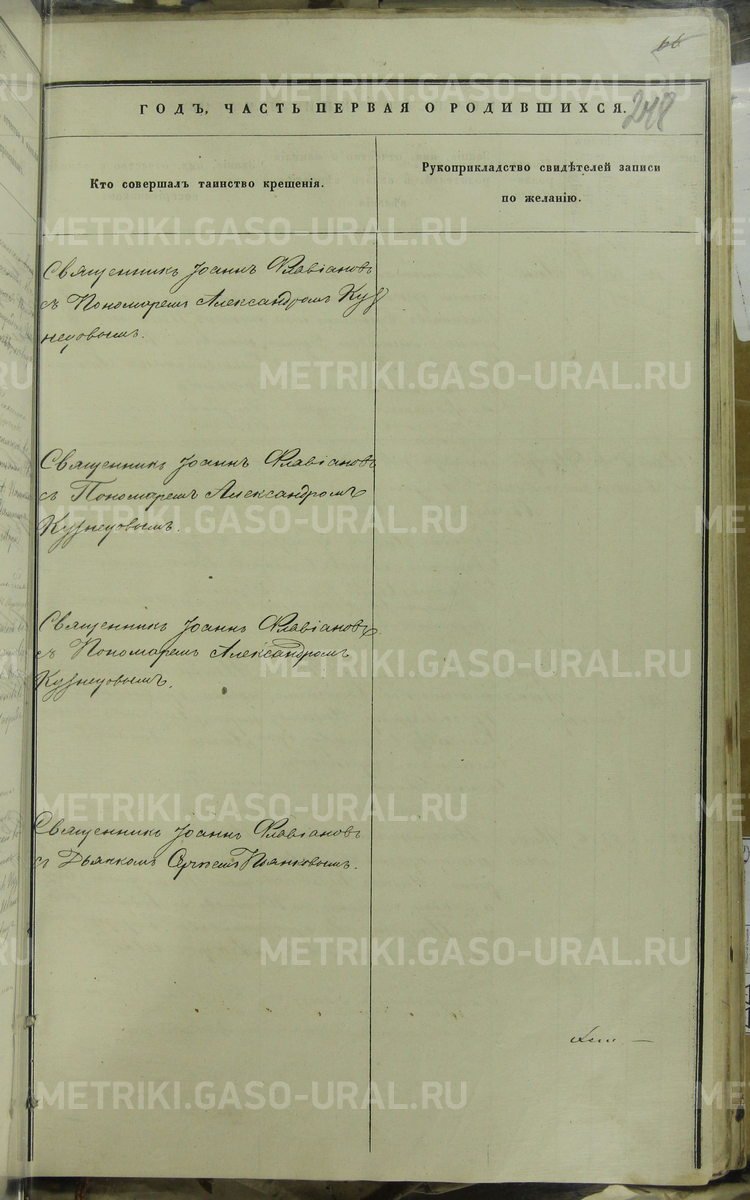 66
ГОДЪ, ЧАСТЬ ПЕРВАЯ О РОДИВШИХСЯ.
248
Кто совершалъ таинство крещенія.
Рукоприкладство свидѣтелей записи
по желанію.
Священникъ Іоаннъ Флавіановъ
съ Пономаремъ Александромъ Куз
нецовымъ.
Священникъ Іоаннъ Флавіановъ
съ Пономаремъ Александромъ
Кузнецовымъ.
Священникъ Іоаннъ Флавіановъ
съ Пономаремъ Александромъ
Кузнецовымъ.
Священникъ Іоаннъ Флавіановъ
съ Дьячкомъ Пьянковымъ.
METRIKI.GASO-URAL.RU